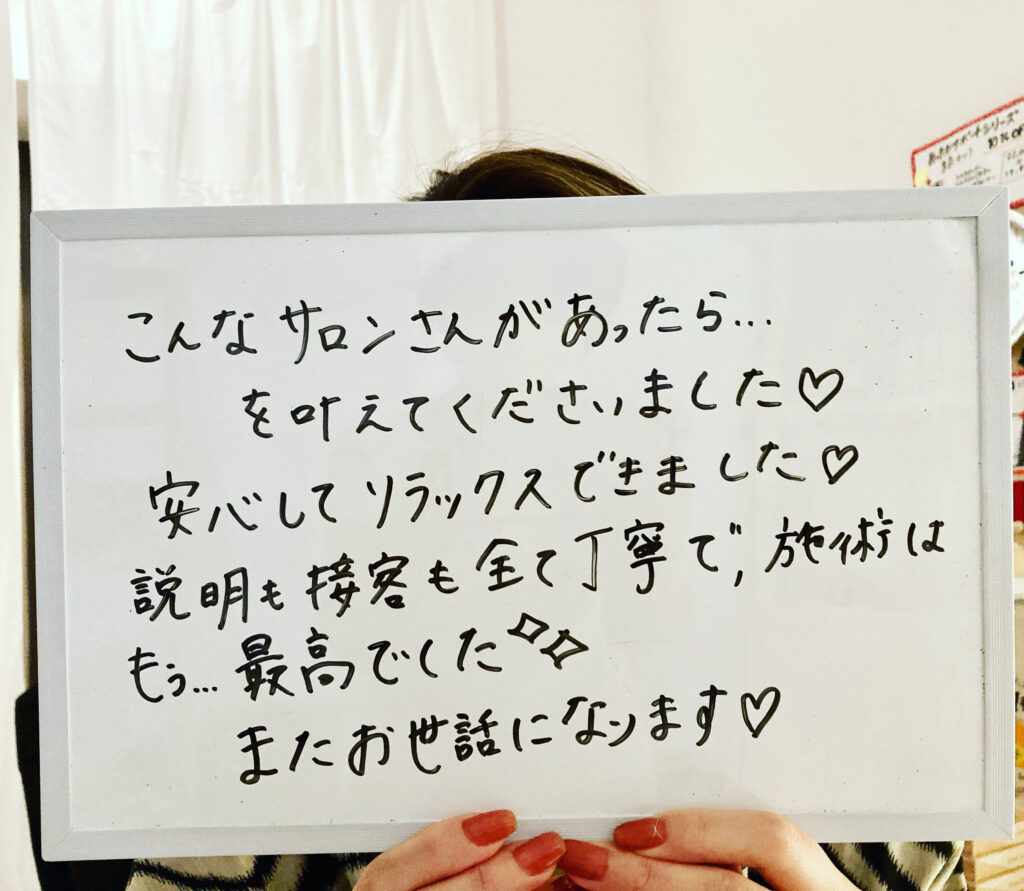 こんなサロンさんがあったら...
を叶えてくださいました♡
安心してリラックスできました♡
説明も接客も全て丁寧で,施術は
もぅ...最高でした
またお世話になります♡